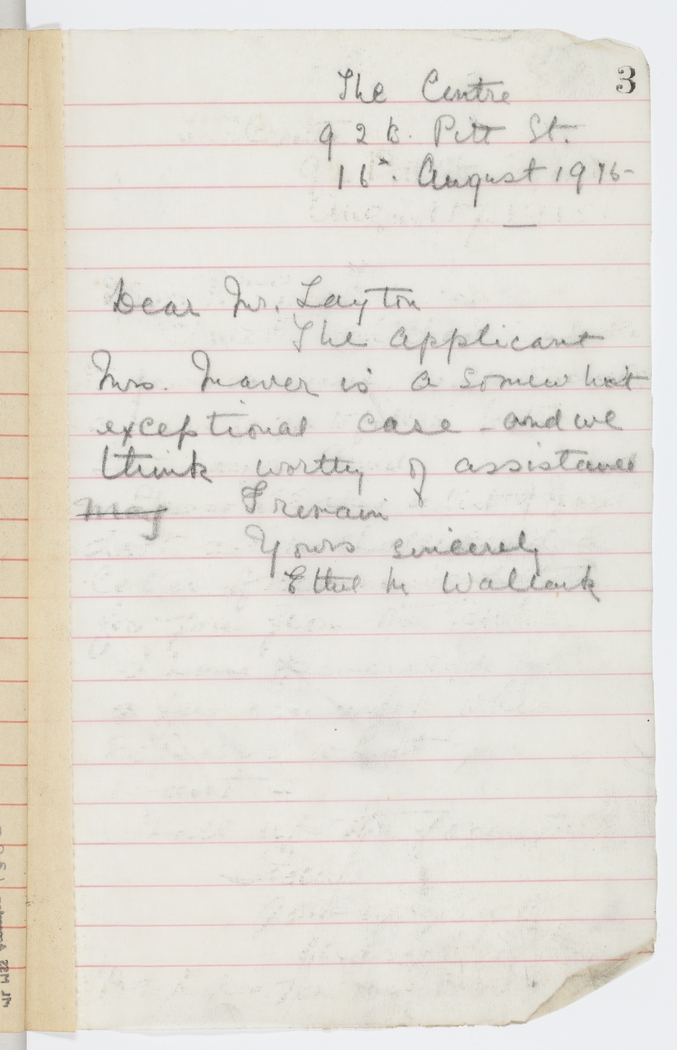 3
The Centre
92B. Pitt St.
16th. August 1916-
Dear Mr. Layton
The applicant
Mrs. Maver is a somewhat
exceptional case - and we
think worthy of assistance
may I remain
Yours sincerely
Ethel M